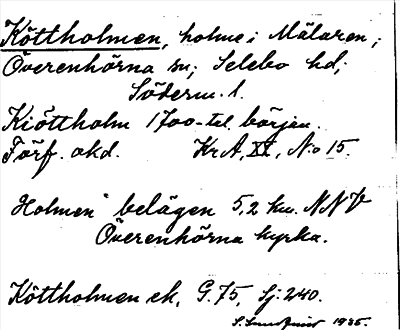 Köttholmen, holme i Mälaren;
Överenhörna sn; Selebo hd;
Söderm. l.
Kiöttholm 1700-tal. början.
Förf. okd. Kr A, XX, No 15.
Holmen belägen 5,2 km. NNV
Överenhörna kyrka.
Köttholmen ek, G. 75, Sj: 240.
S. Lundquist 1935.